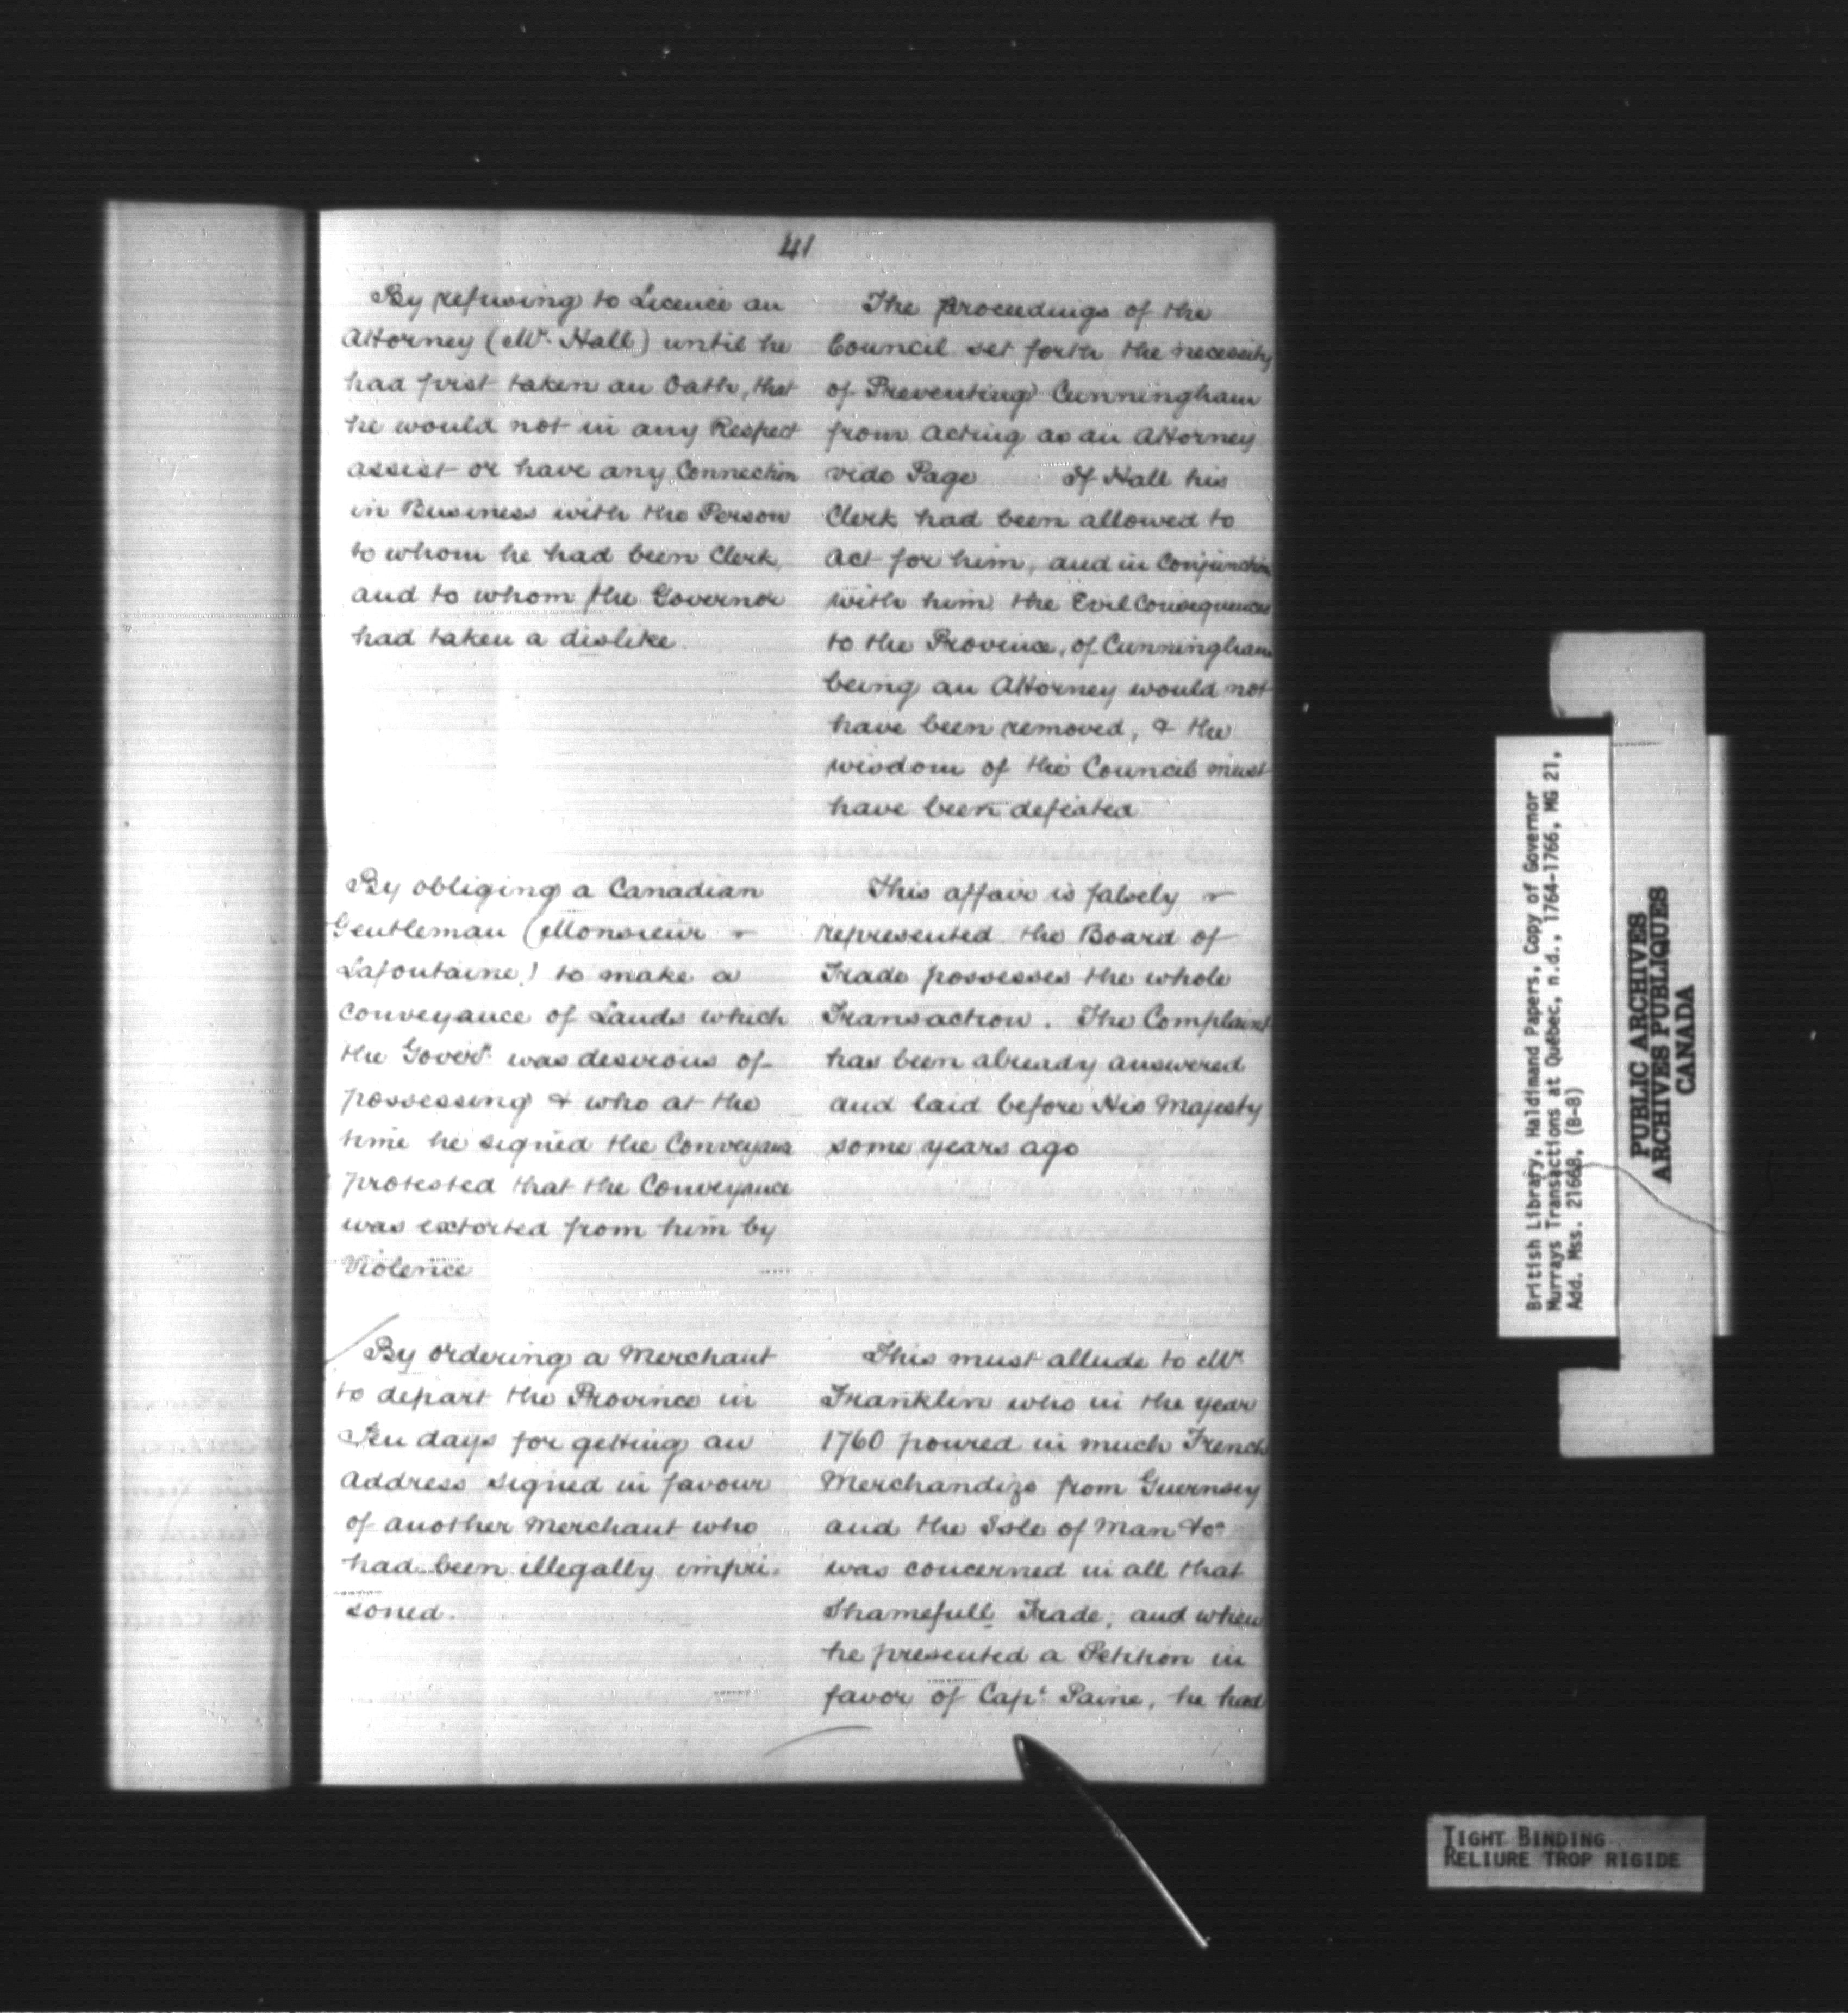 41
By refusing to Licence an
Attorney (Mr. Hall) until he
had first taken an Oath, that
he would not in any Respect
assist or have any Connection
in Business with the Person
to whom he had been Clerk,
and to whom the Governor
had taken a dislike.
By obliging a Canadian
Gentleman (Monsieur -
Lafontaine) to make a
Conveyance of Lands which
the Goverr. was desirous of
possessing & who at the
time he signed the Conveyance
protested that the Conveyance
was extorted from him by
Violence
By ordering a Merchant
to depart the Province in
Ten days for getting an
Address signed in favour
of another Merchant who
had been illegally impri-
soned.
The proceedings of the
Council set forth the necessity
of Preventing Cunningham
from Acting as an Attorney
vide Page If Hall his
Clerk had been allowed to
Act for him, and in Conjunction
with him the Evil Consequences
to the Province, of Cunningham
being an Attorney would not
have been removed, & the
wisdom of the Council must
have been defeated
This affair is falsely -
represented the Board of
Trade possesses the whole
Transaction. The Complaint
has been already answered
and laid before His Majesty
some years ago
This must allude to Mr
Franklin who in the year
1760 poured in much French
Merchandize from Guernsey
and the Isle of Man &ca
was concerned in all that
Shamefull Trade, and when
he presented a Petition in
favor of Capt. Paine, he had
British Library, Haldimand Papers, Copy of Governor
Murrays Transactions at Québec, n.d., 1764-1766, MG 21,
Add. Mss. 21668, (B-8)
PUBLIC ARCHIVES
ARCHIVES PUBLIQUES
CANADA
TIGHT BINDING
RELIURE TROP RIGIDE